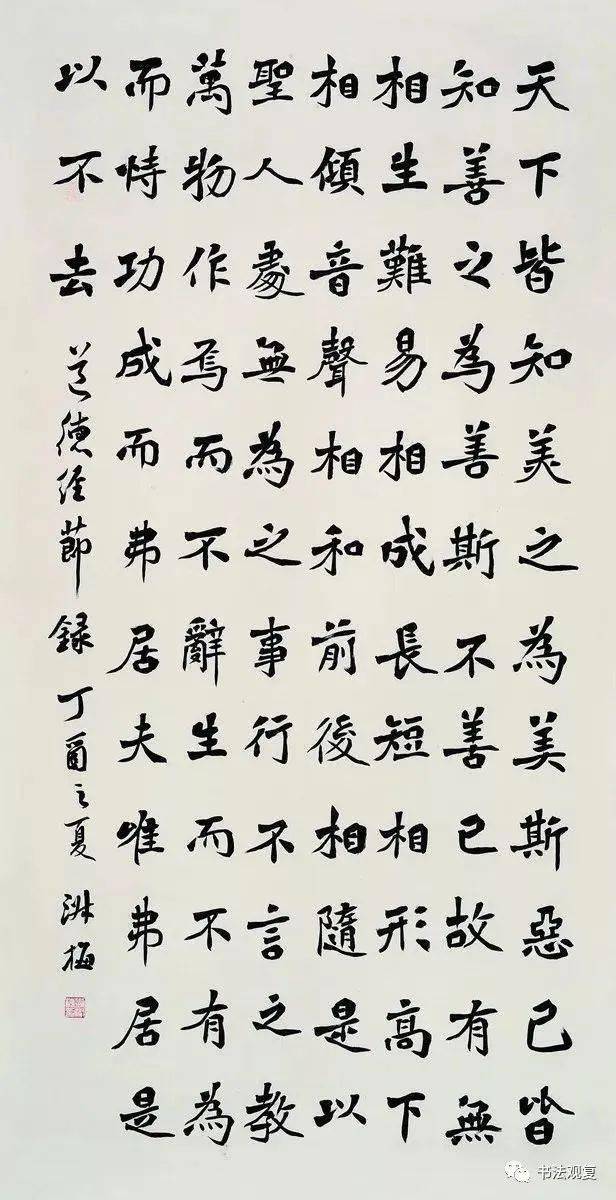 天下皆知美之為美斯惡已皆
知善之為善斯不善已故有無
相生難易相成長短相形高下
相傾音聲相和前後相隨是以
聖人處無為之事行不言之教
萬物作焉而不辭生而不有為
而恃功成而弗居夫唯弗居是
以不去
道德經節録丁酉之夏洪梅
书法观复